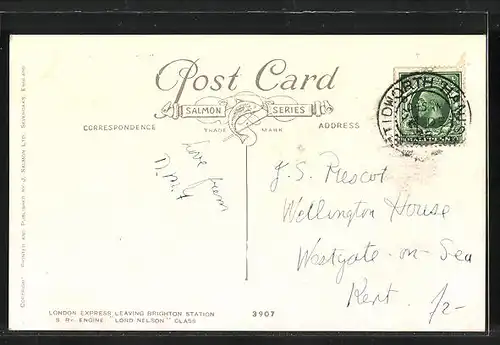 Post Card
SALMON SERIES
TRADE MARK
CORRESPONDENCE
ADDRESS
Love from
D.M.G
J.S. Prescot
Wellington House
Westgate-on-Sea
Kent.
LONDON EXPRESS LEAVING BRIGHTON STATION
S. RY. ENGINE "LORD NELSON" CLASS
3907
COPYRIGHT PRINTED AND PUBLISHED BY J. SALMON LTD. SEVENOAKS ENGLAND